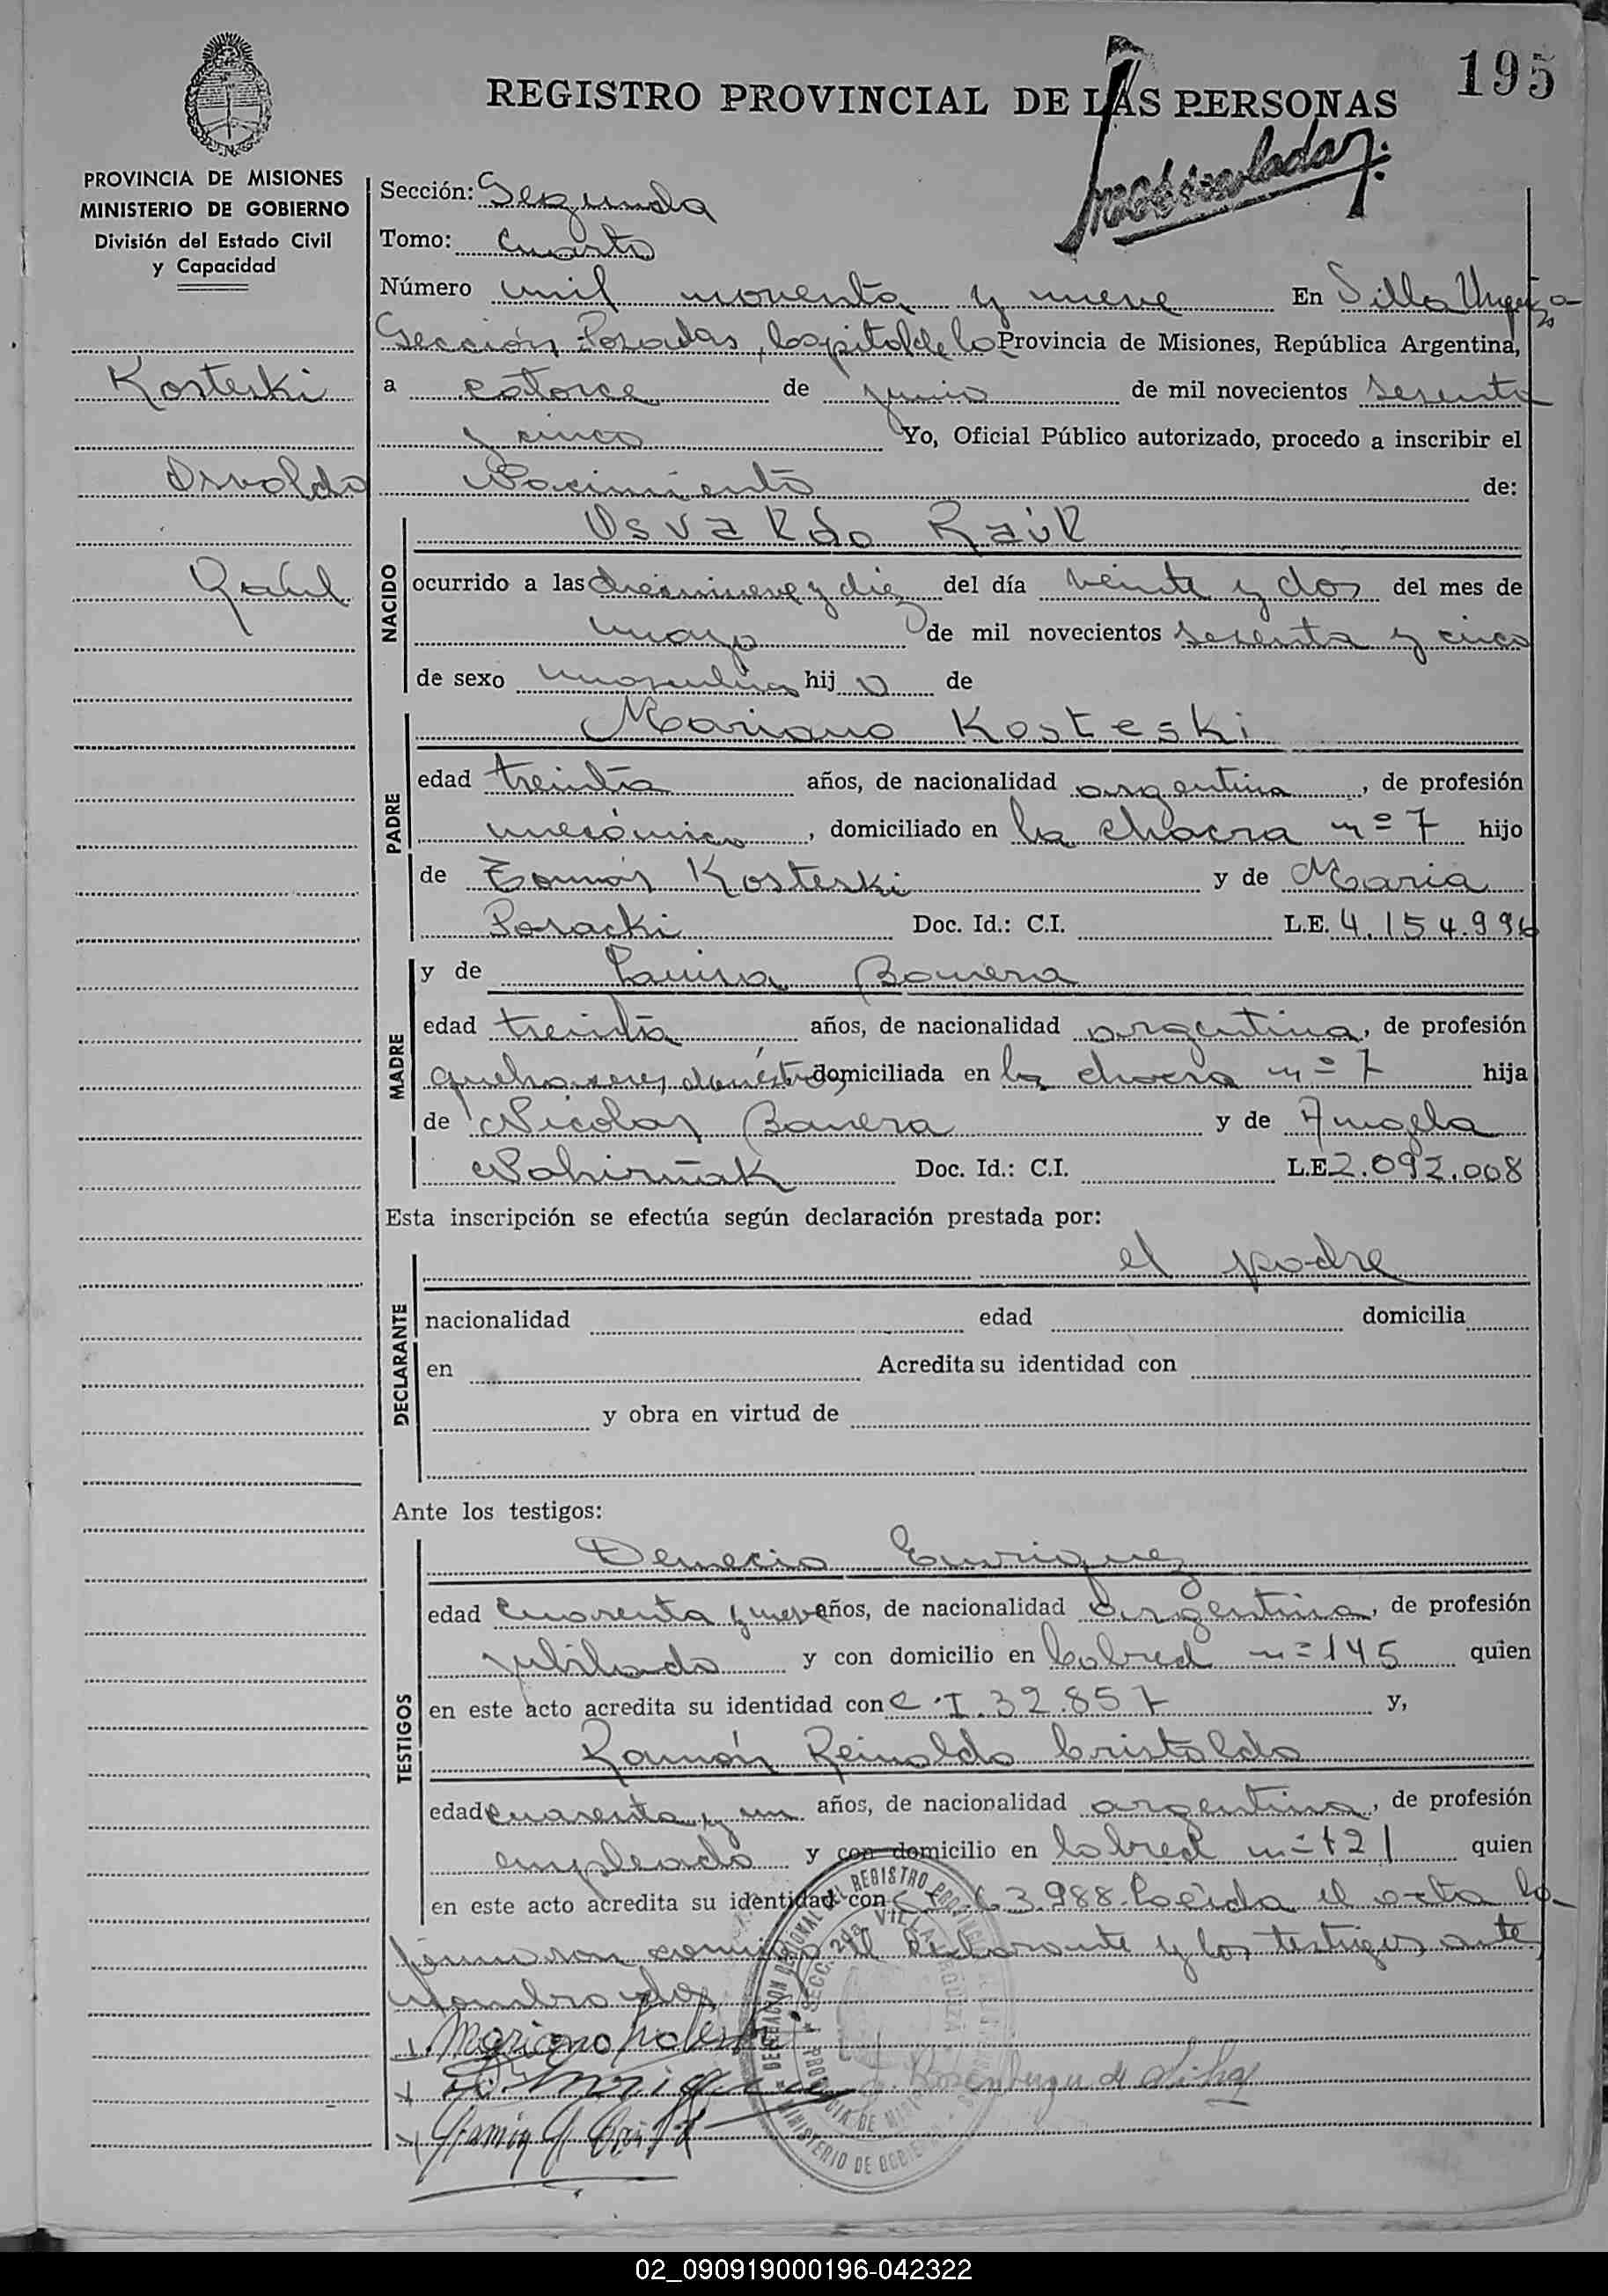 195
REGISTRO PROVINCIAL DE LAS PERSONAS
PROVINCIA DE MISIONES
MINISTERIO DE GOBIERNO
División del Estado Civil
y Capacidad
Kosteski
Osvaldo
Raúl
Sección: Segunda
Tomo: Cuarto
Número mil noventa y nueve En Villa Urquiza
Sección Posadas, Capital de la Provincia de Misiones, República Argentina,
a catorce de junio de mil novecientos sesenta
y cinco Yo, Oficial Público autorizado, procedo a inscribir el
Nacimiento de:
NACIDO
Osvaldo Raúl
ocurrido a las diecinueve y diez del día veinte y dos del mes de
mayo de mil novecientos sesenta y cinco
de sexo masculino hijo de
PADRE
Mariano Kosteski
edad treinta años, de nacionalidad argentina, de profesión
mecánico, domiciliado en la chacra nº 7 hijo
de Tomás Kosteski y de María
Posacki Doc. Id.: C.I. L.E. 4.154.996
MADRE
y de Luisa Banera
edad treinta años, de nacionalidad argentina, de profesión
quehaseres domésticos domiciliada en la chacra nº 7 hija
de Nicolas Banera y de Angela
Nahirñak Doc. Id.: C.I. L.E. 2.092.008
Esta inscripción se efectúa según declaración prestada por:
DECLARANTE
el padre
nacionalidad edad domicilia
en Acredita su identidad con
y obra en virtud de
Ante los testigos:
TESTIGOS
Demecio Enriquez
edad cuarenta y nueve años, de nacionalidad argentina, de profesión
jubilado y con domicilio en Cabred nº 145 quien
en este acto acredita su identidad con C.I. 32.857 y,
Ramón Reinaldo Cristaldo
edad cuarenta y un años, de nacionalidad argentina, de profesión
empleado y con domicilio en Cabred nº 121 quien
en este acto acredita su identidad con 63.988. Leída el acta la
firmaron conmigo el declarante y los testigos ante
nombrados
Mariano Kosteski
DELEGACION REGIONAL DEL REGISTRO PROVINCIAL
SECC. 2da VILLA URQUIZA
PROVINCIA DE MISIONES
MINISTERIO DE GOBIERNO
02_090919000196-042322